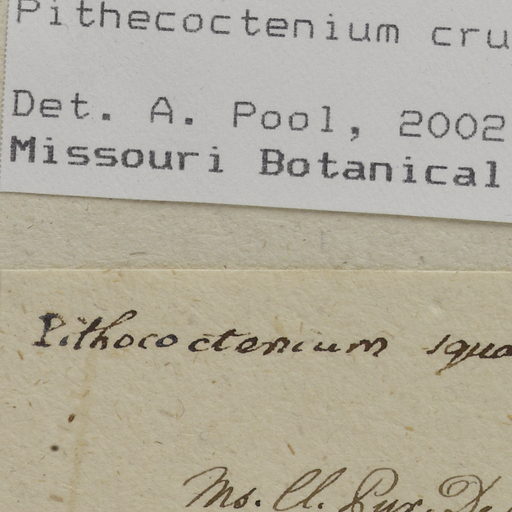 Pithecoctenium cru
Det. A. Pool, 2002
Missouri Botanical
Pithococtenium squa
Ms. Cl. Pur. De